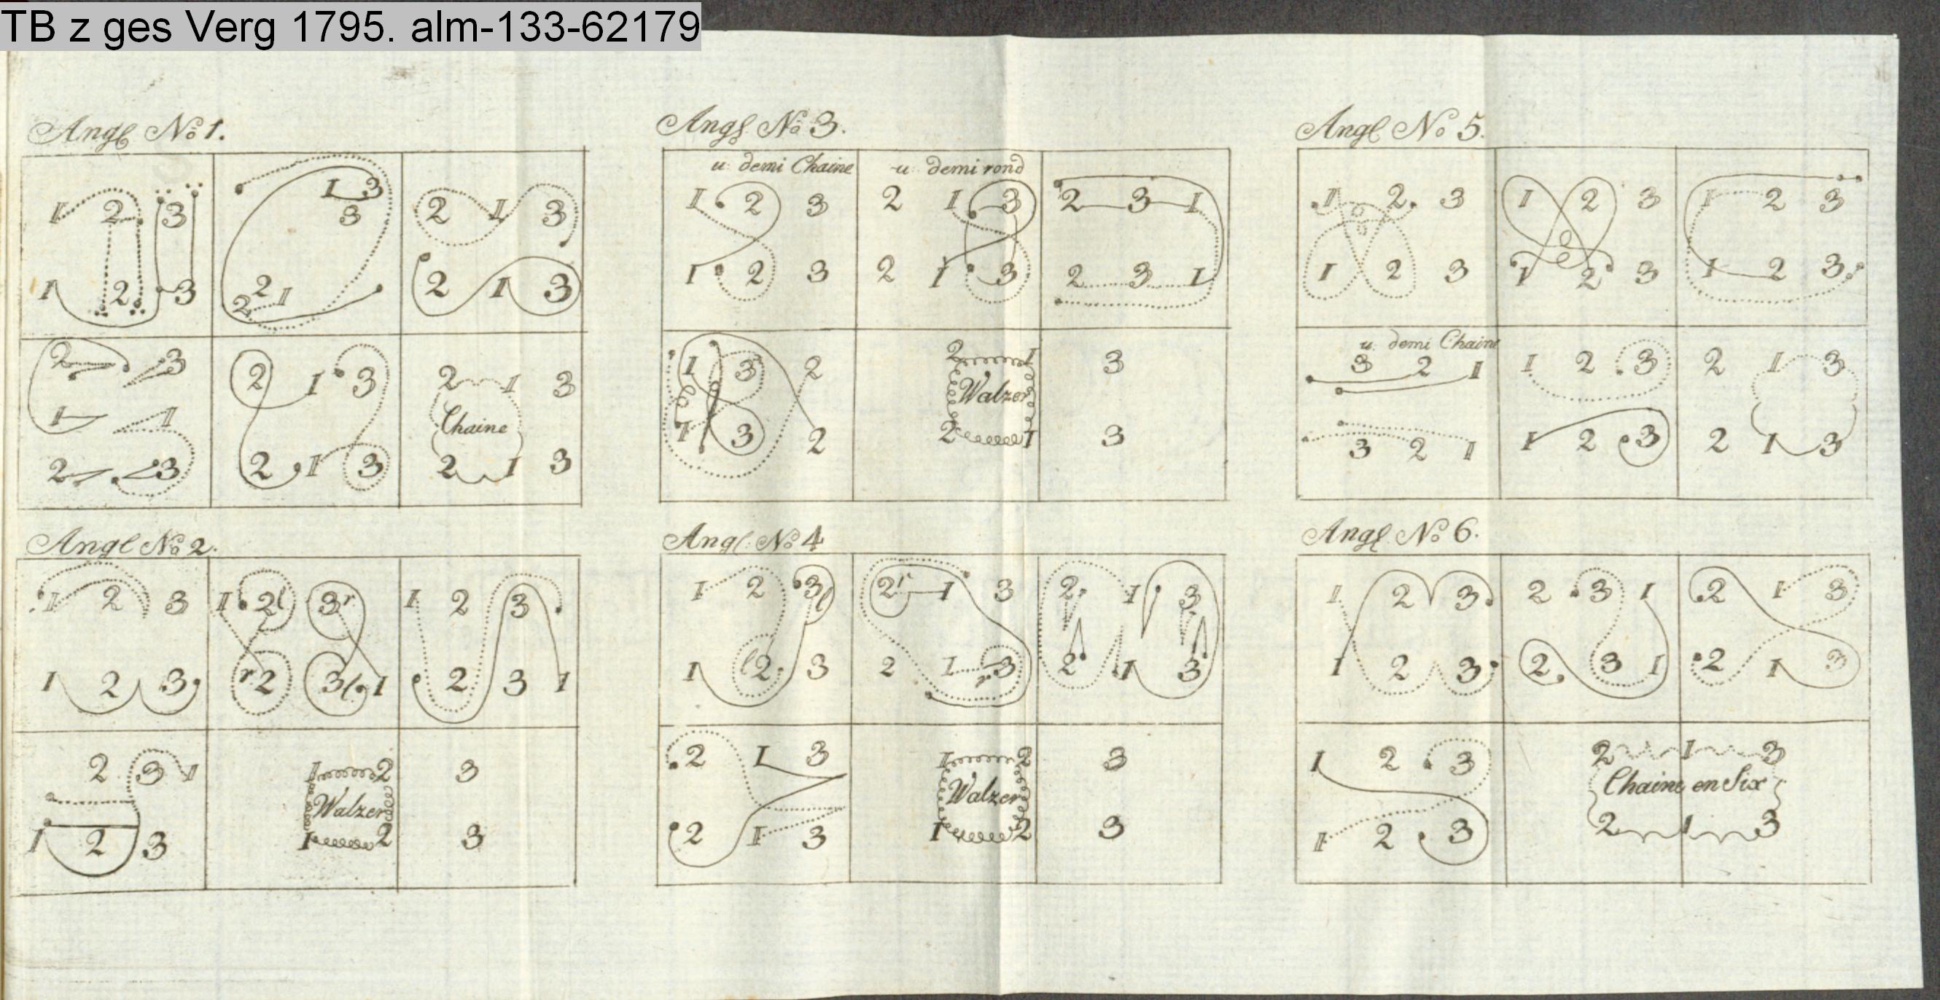 TB z ges Verg 1795. alm-133-62179
Angl No 1.
1 2 3
1 2 3
1 3
3
2
2 1
2 1 3
2 1 3
2 3
1 1
2 3
2 1 3
2 1 3
2 1 3
Chaine
2 1 3
Angl No 2.
1 2 3
1 2 3
1 2l 3r
r2 3l. 1
1 2 3
2 3 1
2 3 1
1 2 3
1 2 3
Walzer
1 2 3
Angl No 3.
u demi Chaine
1 2 3
1 2 3
u demi rond
2 1 3
2 1 3
2 3 1
2 3 1
1 3 2
1 3 2
2 1 3
Walzer
2 1 3
Angl. No 4
1 2 3l
1 l2. 3
2r 1 3
2 1 r3
2. 1 3
2 1 3
2 1 3
2 1 3
1 2 3
Walzer
1 2 3
Angl No 5.
1 2. 3
1 2 3
1 2 3
1 2 3
1 2 3
1 2 3
u. demi Chaine
3 2 1
3 2 1
1 2 3
1 2 3
2 1 3
2 1 3
Angl No 6.
1 2 3
1 2 3
2 3 1
2 3 1
2 1 3
2 1 3
1 2 3
1 2 3
2 1 3
Chaine en Six
2 1 3